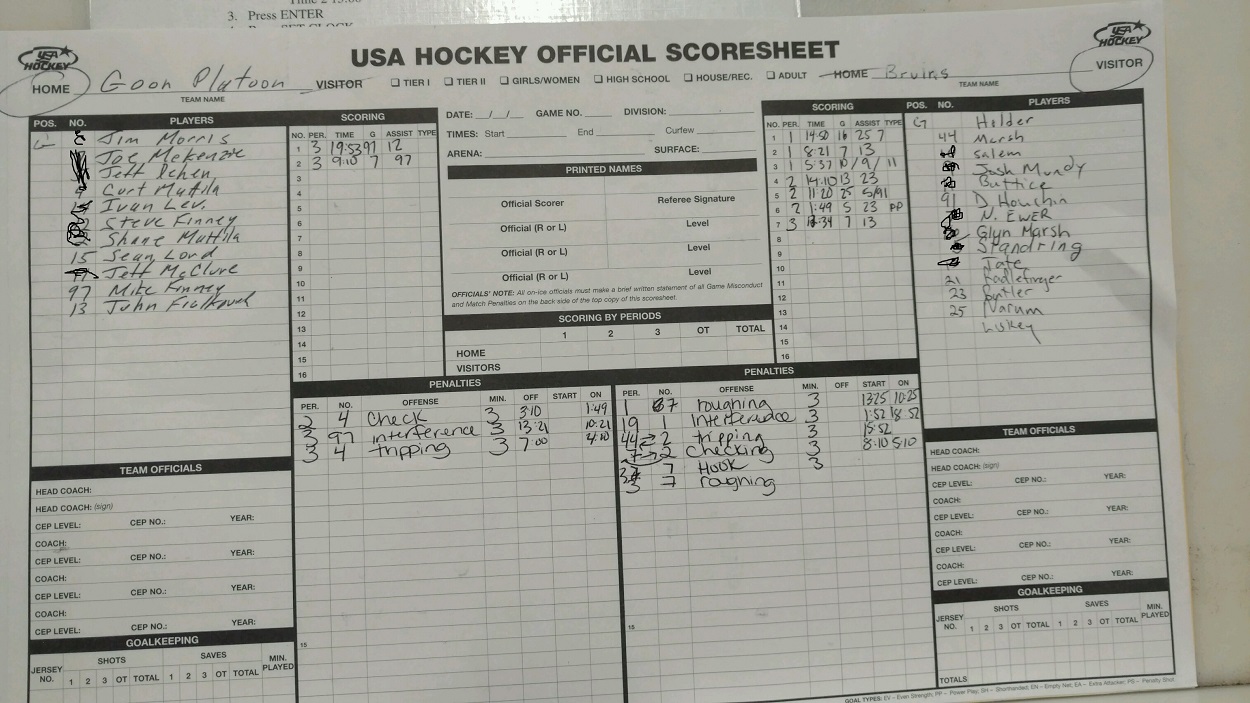 Time 2 15:00
3. Press ENTER
USA HOCKEY
USA HOCKEY OFFICIAL SCORESHEET
USA HOCKEY
HOME Goon Platoon VISITOR
TEAM NAME
☐ TIER I ☐ TIER II ☐ GIRLS/WOMEN ☐ HIGH SCHOOL ☐ HOUSE/REC. ☐ ADULT
HOME Bruins VISITOR
TEAM NAME
POS. NO. PLAYERS
G Jim Morris
Joe Mckenzie
Jeff Ichen
Curt Mattila
Ivan Lev.
Steve Finney
Shane Mattila
15 Sean Lord
Jeff McClure
97 Mike Finney
13 John
SCORING
NO. PER. TIME G ASSIST TYPE
1 3 19:53 97 12
2 3 9:10 7 97
3
4
5
6
7
8
9
10
11
12
13
14
15
16
DATE: __/__/__ GAME NO. DIVISION:
TIMES: Start End Curfew
ARENA: SURFACE:
PRINTED NAMES
Official Scorer Referee Signature
Official (R or L) Level
Official (R or L) Level
Official (R or L) Level
OFFICIALS' NOTE: All on-ice officials must make a brief written statement of all Game Misconduct
and Match Penalties on the back side of the top copy of this scoresheet.
SCORING BY PERIODS
1 2 3 OT TOTAL
HOME
VISITORS
SCORING
NO. PER. TIME G ASSIST TYPE
1 1 14:50 16 25 7
2 1 8:21 7 13
3 1 5:37 10/9/11
4 2 14:10 13 23
5 2 11:20 25 5/91
6 2 1:49 5 23 PP
7 3 :34 7 13
8
9
10
11
12
13
14
15
16
POS. NO. PLAYERS
G Hilder
44 Marsh
Salem
Josh Mundy
Buttice
91 D. Houchin
N. EWER
Glyn Marsh
Standring
Tate
21 Radlefinger
23 Butler
25 Narum
Lukey
PENALTIES
PER. NO. OFFENSE MIN. OFF START ON
2 4 Check 3 3:10 1:49
3 97 interference 3 13:21 10:21
3 4 tripping 3 7:00 4:10
15
PENALTIES
PER. NO. OFFENSE MIN. OFF START ON
1 7 roughing 3 1325 10:25
19 1 Interference 3 1:52 18:52
44 2 tripping 3 15:52
2 Checking 8:10 5:10
7 Hook 3
3 7 roughing
15
TEAM OFFICIALS
HEAD COACH:
HEAD COACH: (sign)
CEP LEVEL: CEP NO.: YEAR:
COACH:
CEP LEVEL: CEP NO.: YEAR:
COACH:
CEP LEVEL: CEP NO.: YEAR:
COACH:
CEP LEVEL: CEP NO.: YEAR:
GOALKEEPING
JERSEY NO. SHOTS SAVES MIN. PLAYED
1 2 3 OT TOTAL 1 2 3 OT TOTAL
TEAM OFFICIALS
HEAD COACH:
HEAD COACH: (sign)
CEP LEVEL: CEP NO.: YEAR:
COACH:
CEP LEVEL: CEP NO.: YEAR:
COACH:
CEP LEVEL: CEP NO.: YEAR:
COACH:
CEP LEVEL: CEP NO.: YEAR:
GOALKEEPING
JERSEY NO. SHOTS SAVES MIN. PLAYED
1 2 3 OT TOTAL 1 2 3 OT TOTAL
TOTALS
GOAL TYPES: EV – Even Strength, PP – Power Play, SH – Shorthanded, EN – Empty Net, EA – Extra Attacker, PS – Penalty Shot